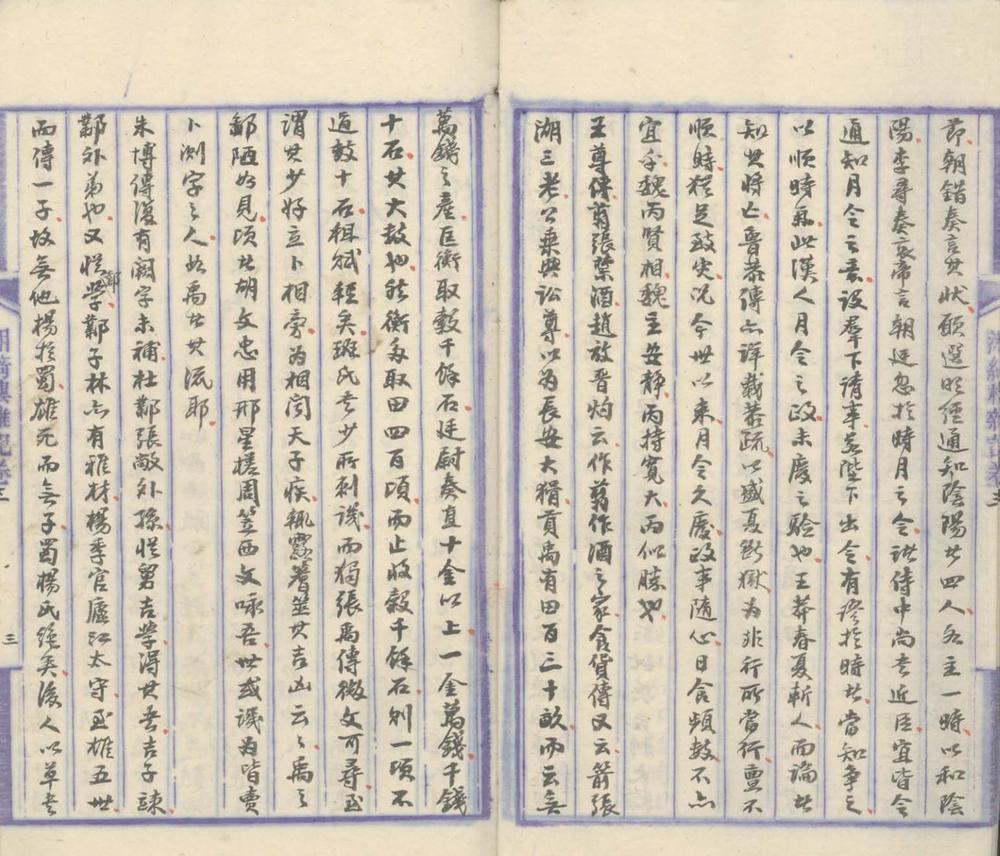 節朝錯奏言其狀願選明經通知陰陽者四人各主一時以和陰
陽李尋奏哀帝言朝廷忽於時月之令諸侍中尚書近臣宜皆令
通知月令之意設羣下請事若陛下出令有謬於時者當知爭之
以順時氣此漢人月令之政未廢之驗也王莽春夏斬人而論者
知其將亡魯恭傳亦詳載恭疏以盛夏斷獄為非行所當行亶不
順時猶足致災況今世以來月令久廢政事隨心日食頻數不亦
宜乎魏丙賢相魏主安靜丙持寬大丙似勝也
王尊傳翦張禁酒趙放晉灼云作翦作酒之家食貨傳又云箭張
湖三老公乘興訟尊以為長安大猾貢禹有田百三十畝而云無
萬錢之產匡衡取穀千餘石廷尉奏直十金以上一金萬錢千錢
十石其大較也然衡多取田四百頃而止收穀千餘石則一頃不
過穀十石租賦輕矣班氏書少所刺譏而獨張禹傳微文可尋至
謂其少好立卜相旁為相問天子疾輒露蓍筮其吉凶云云禹之
鄙陋如見頃者胡文忠用邢星槎周笠西文咏吾世或譏為皆賣
卜測字之人如禹者其流耶
朱博傳復有闕字未補杜鄴張敞外孫從舅吉學得其書吉子竦
鄴外弟也又從鄴學鄴子林亦有雅材楊季官廬江太守至雄五世
而傳一子故無他揚於蜀雄死而無子蜀楊氏絕矣後人以草書
湘綺樓雜記卷三
三